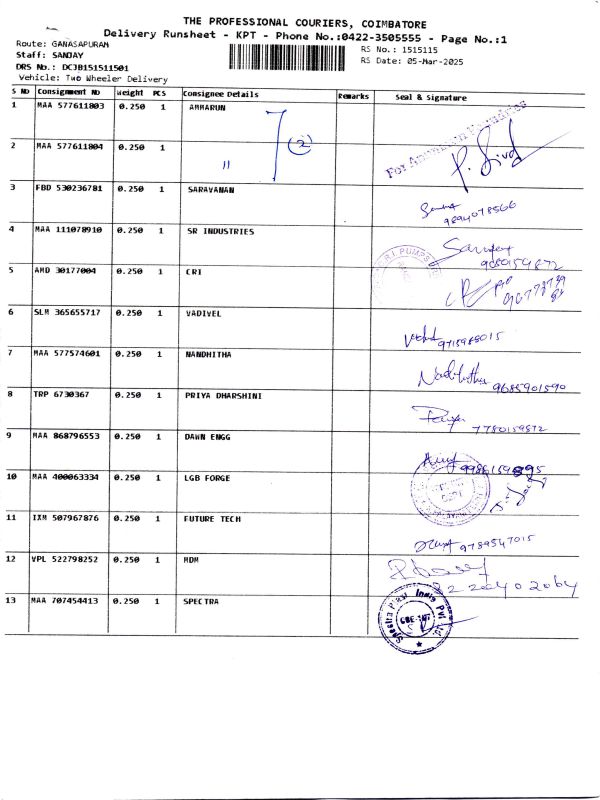 THE PROFESSIONAL COURIERS, COIMBATORE
Delivery Runsheet - KPT - Phone No.:0422-3505555 - Page No.:1
Route: GANASAPURAM
RS No.: 1515115
Staff: SANJAY
RS Date: 05-Mar-2025
DRS No.: DCJB151511501
Vehicle: Two Wheeler Delivery
S No Consignment No Weight PCS Consignee Details Remarks Seal & Signature
1 MAA 577611803 0.250 1 AMMARUN
2 MAA 577611804 0.250 1 11 2
3 FBD 530236781 0.250 1 SARAVANAN 9894078566
4 MAA 111078910 0.250 1 SR INDUSTRIES 9080159872
5 AMD 30177004 0.250 1 CRI
6 SLM 365655717 0.250 1 VADIVEL 9715988015
7 MAA 577574601 0.250 1 NANDHITHA Nandhitha 9685901590
8 TRP 6730367 0.250 1 PRIYA DHARSHINI 7780159872
9 MAA 868796553 0.250 1 DAWN ENGG
10 MAA 400063334 0.250 1 LGB FORGE
11 IXM 507967876 0.250 1 FUTURE TECH 9789547015
12 VPL 522798252 0.250 1 MDM
13 MAA 707454413 0.250 1 SPECTRA